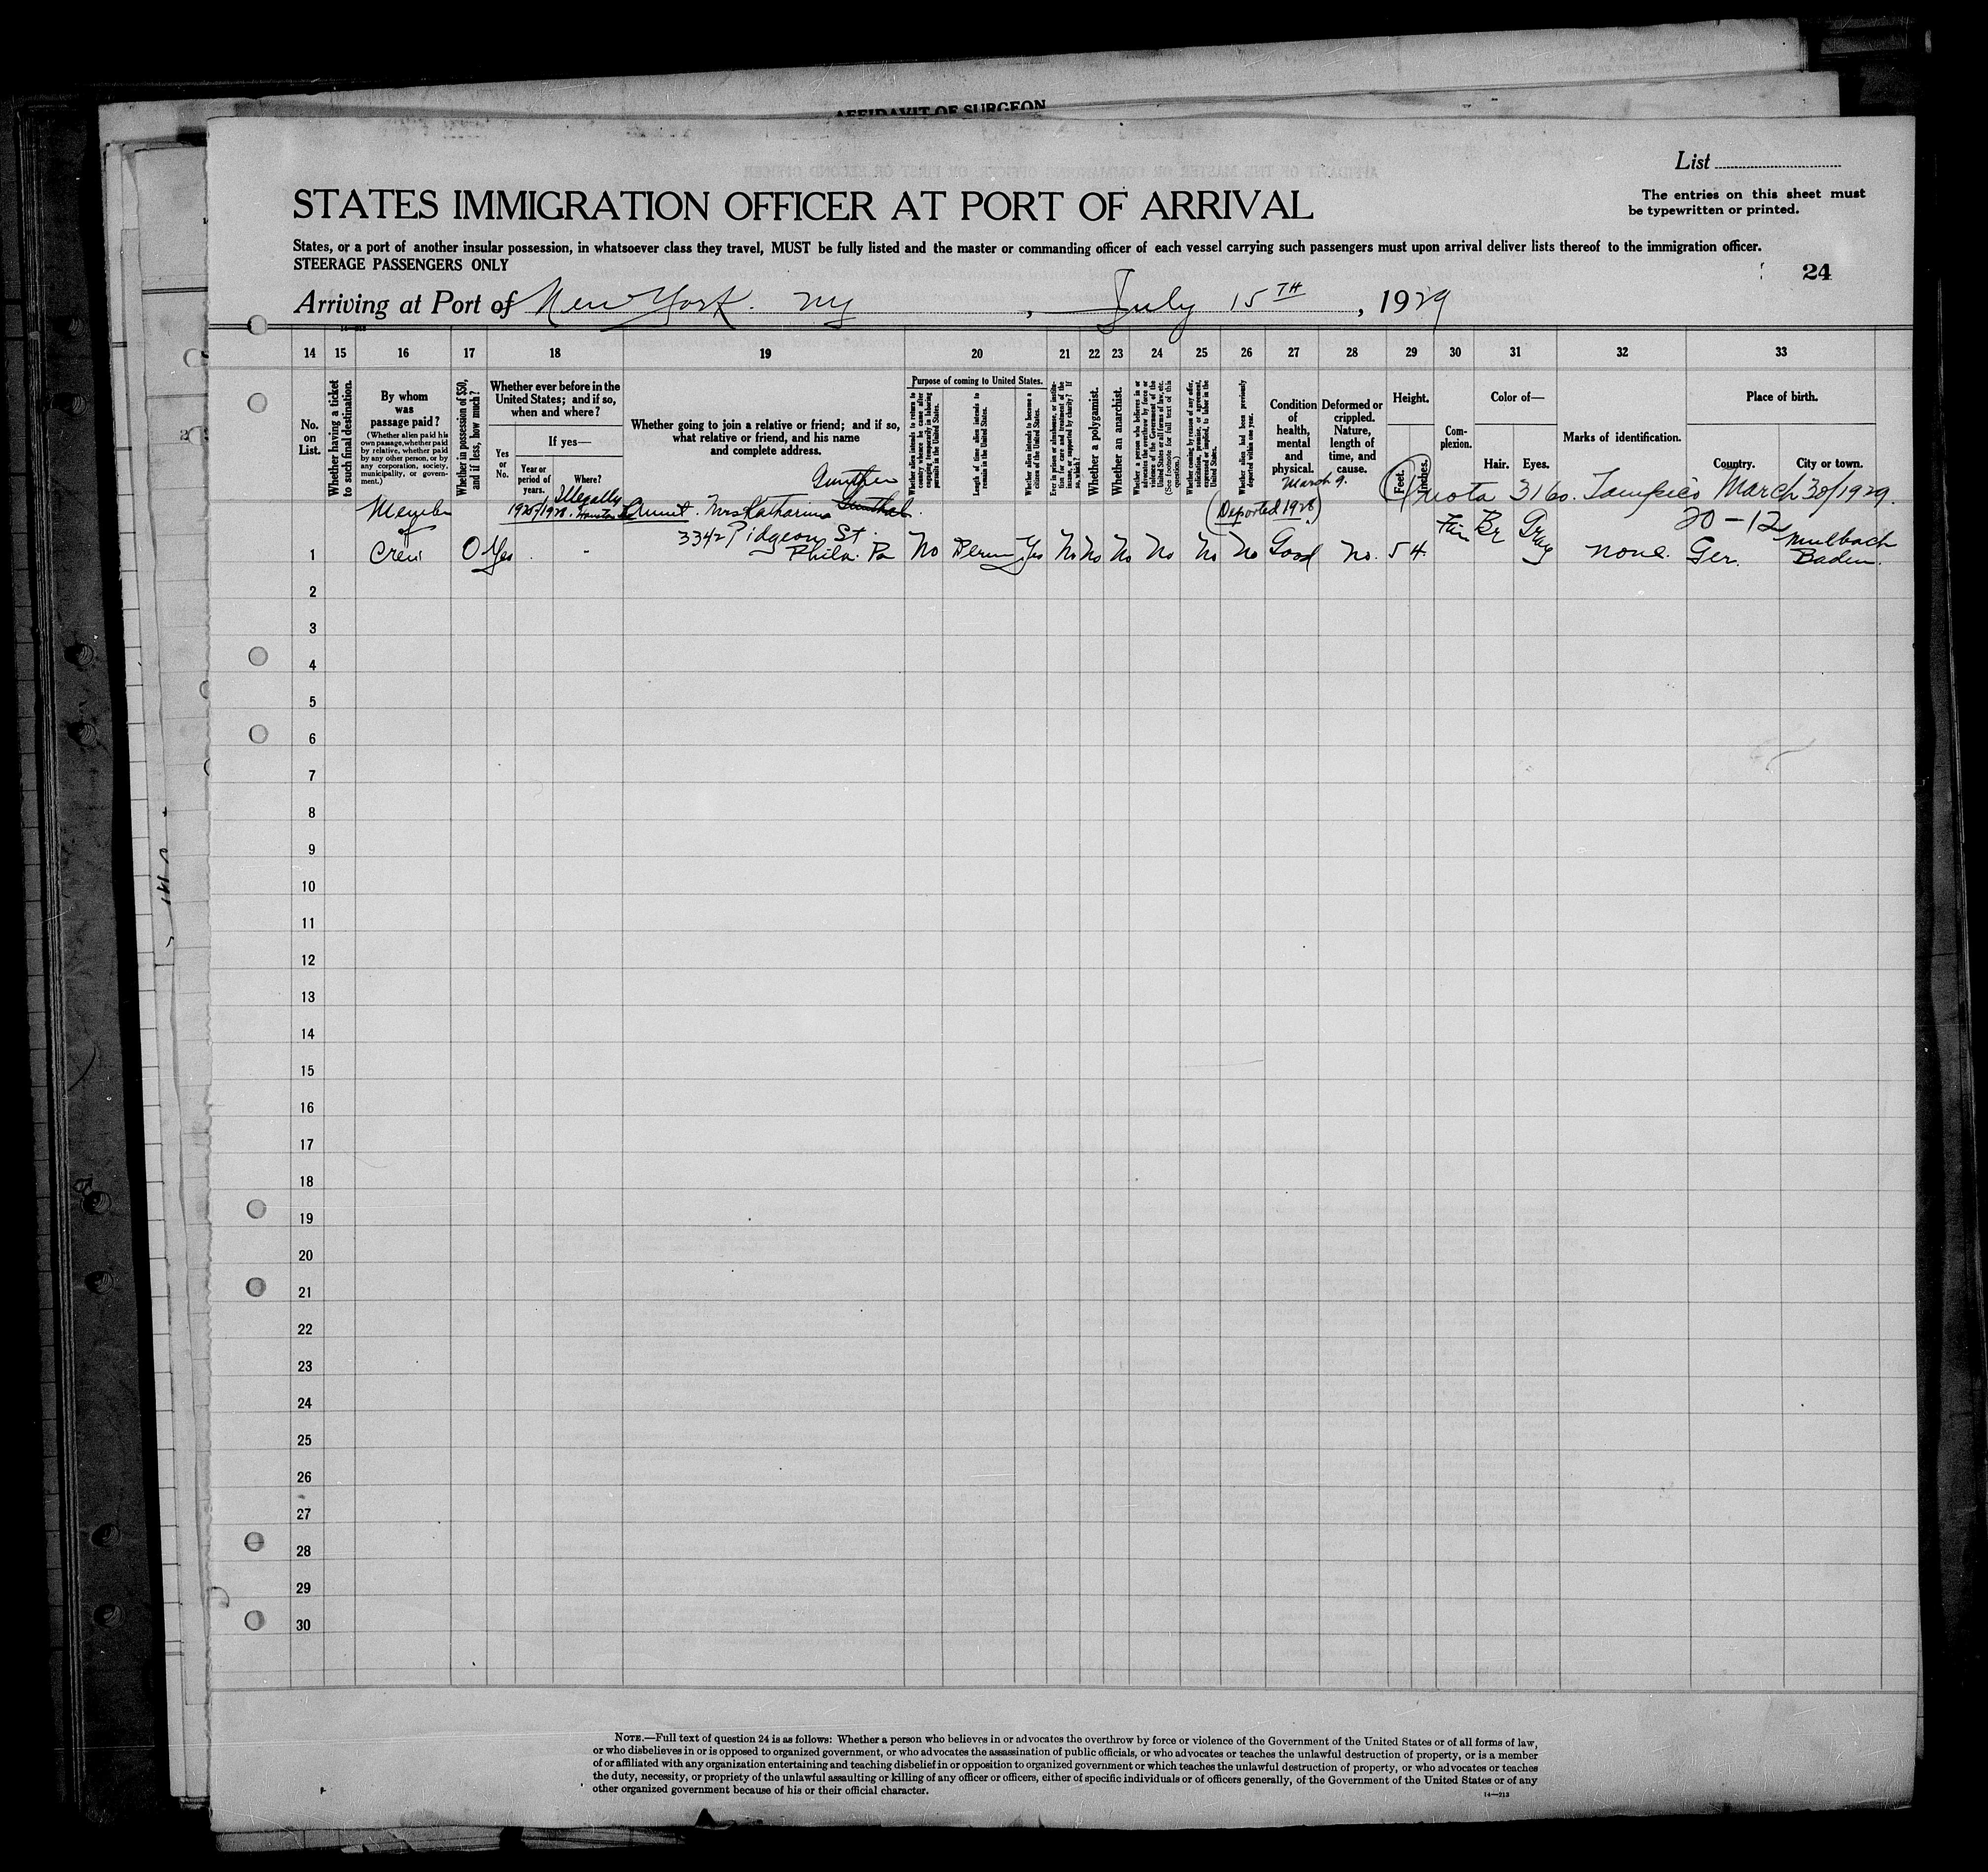 AFFIDAVIT OF SURGEON
List
STATES IMMIGRATION OFFICER AT PORT OF ARRIVAL
The entries on this sheet must
be typewritten or printed.
States, or a port of another insular possession, in whatsoever class they travel, MUST be fully listed and the master or commanding officer of each vessel carrying such passengers must upon arrival deliver lists thereof to the immigration officer.
STEERAGE PASSENGERS ONLY
24
Arriving at Port of New York. NY, July 15TH, 1929
14 15 16 17 18 19 20 21 22 23 24 25 26 27 28 29 30 31 32 33
No.
on
List.
Whether having a ticket
to such final destination.
By whom
was
passage paid?
(Whether alien paid his
own passage, whether paid
by relative, whether paid
by any other person, or by
any corporation, society,
municipality, or govern-
ment.)
Whether in possession of $50,
and if less, how much?
Whether ever before in the
United States; and if so,
when and where?
Yes
or
No.
If yes—
Year or
period of
years.
Where?
Whether going to join a relative or friend; and if so,
what relative or friend, and his name
and complete address.
Purpose of coming to United States.
Whether alien intends to return to
country whence he came after
engaging temporarily in laboring
pursuits in the United States.
Length of time alien intends to
remain in the United States.
Whether alien intends to become a
citizen of the United States.
Ever in prison or almshouse, or institu-
tion for care and treatment of the
insane, or supported by charity? If
so, which?
Whether a polygamist.
Whether an anarchist.
Whether a person who believes in or
advocates the overthrow by force or
violence of the Government of the
United States or all forms of law, etc.
(See footnote for full text of this
question.)
Whether coming by reason of any offer,
solicitation, promise, or agreement,
expressed or implied, to labor in the
United States.
Whether alien had been previously
deported within one year.
Condition
of
health,
mental
and
physical.
Deformed or
crippled.
Nature,
length of
time, and
cause.
Height.
Feet.
Inches.
Com-
plexion.
Color of—
Hair. Eyes.
Marks of identification.
Place of birth.
Country. City or town.
Gunther
Illegally March 9. Quota 3160. Tampico March 30/1929.
Member 1925/1928. Houston Aunt. Mrs Katharina (Deported 1928)
of 3342 Pidgeon St. 20-12
1 Crew 0 Yes - Phila. Pa No Perm Yes No No No No No No Good No. 5 4 Fair Br Gray none. Ger. Mulbach
Baden.
2
3
4
5
6
7
8
9
10
11
12
13
14
15
16
17
18
19
20
21
22
23
24
25
26
27
28
29
30
NOTE.—Full text of question 24 is as follows: Whether a person who believes in or advocates the overthrow by force or violence of the Government of the United States or of all forms of law,
or who disbelieves in or is opposed to organized government, or who advocates the assassination of public officials, or who advocates or teaches the unlawful destruction of property, or is a member
of or affiliated with any organization entertaining and teaching disbelief in or opposition to organized government or which teaches the unlawful destruction of property, or who advocates or teaches
the duty, necessity, or propriety of the unlawful assaulting or killing of any officer or officers, either of specific individuals or of officers generally, of the Government of the United States or of any
other organized government because of his or their official character.
14—213